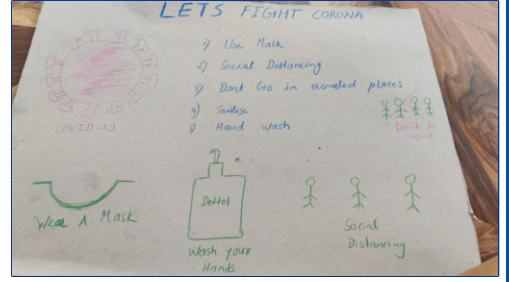 LETS FIGHT CORONA
1) Use Mask
2) Social Distancing
3) Dont Go in crowded places
4) Sanitize
5) Hand wash
COVID-19
Don't go
crowd
Wear A Mask
Dettol
Wash your
Hands
Social
Distancing